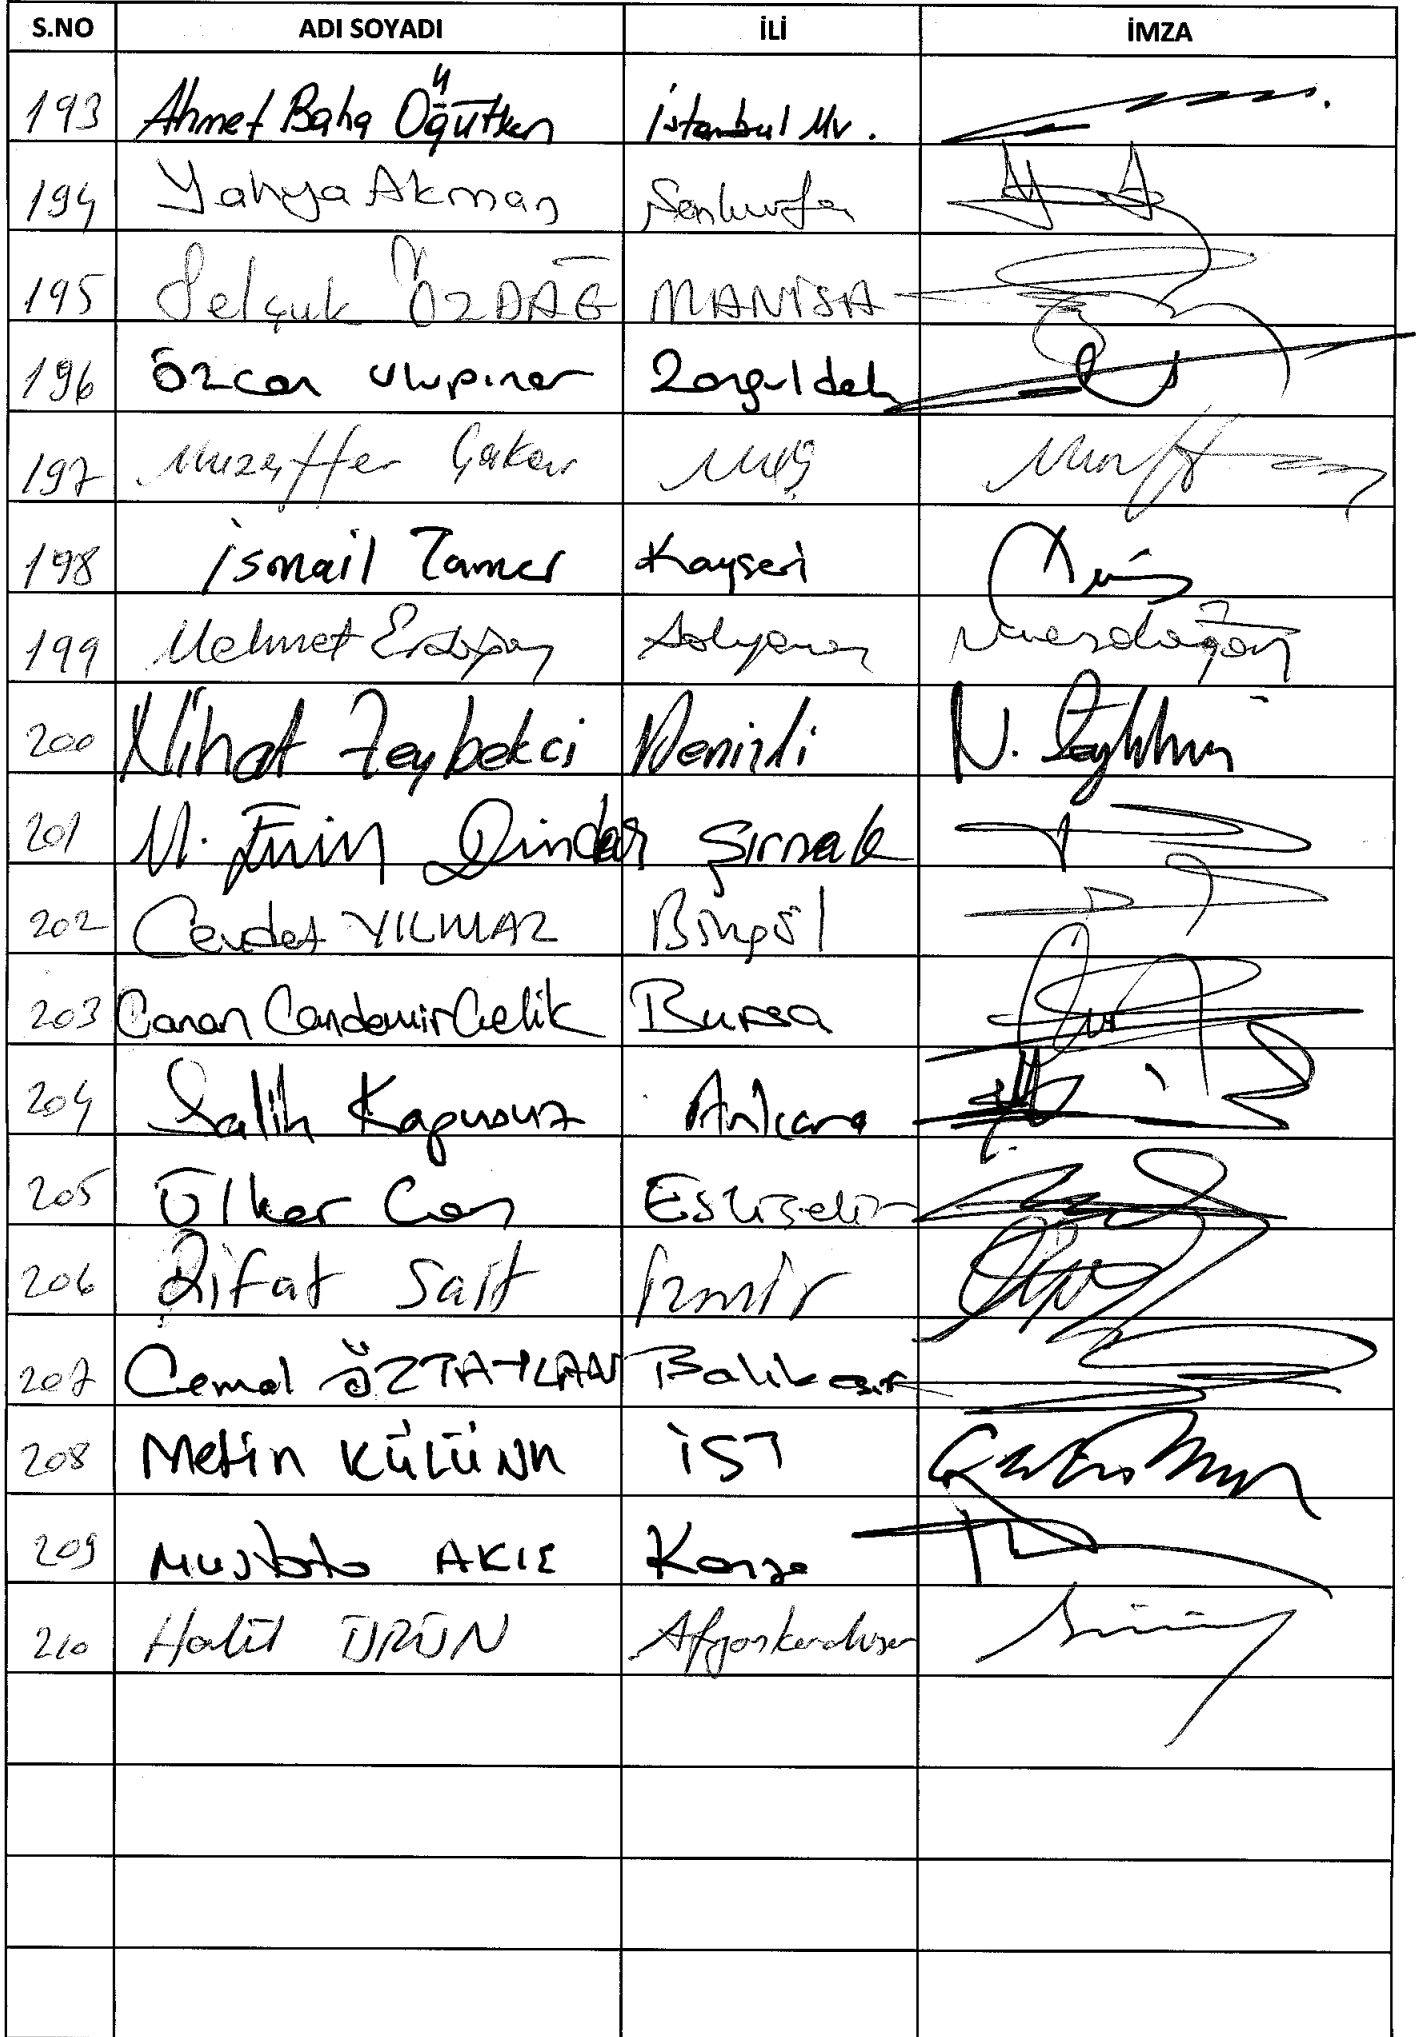 S.NO ADI SOYADI İLİ İMZA
193 Ahmet Baha Öğütken İstanbul Mv.
194 Yahya Akman Şanlıurfa
195 Selçuk ÖZDAĞ MANİSA
196 Özcan Ulupınar Zonguldak
197 Muzaffer Çakar Muş
198 İsmail Tamer Kayseri
199 Mehmet Erdoğan Adıyaman
200 Nihat Zeybekci Denizli N. Zeybekci
201 M. Emin Dindar Şırnak
202 Cevdet YILMAZ Bingöl
203 Canan Candemir Çelik Bursa
204 Salih Kapusuz Ankara
205 Ülker Can Eskişehir
206 Rifat Sait İzmir
207 Cemal ÖZTAYLAN Balıkesir
208 Metin KÜLÜNK İST
209 Mustafa AKIŞ Konya
210 Halil ÜRÜN Afyonkarahisar